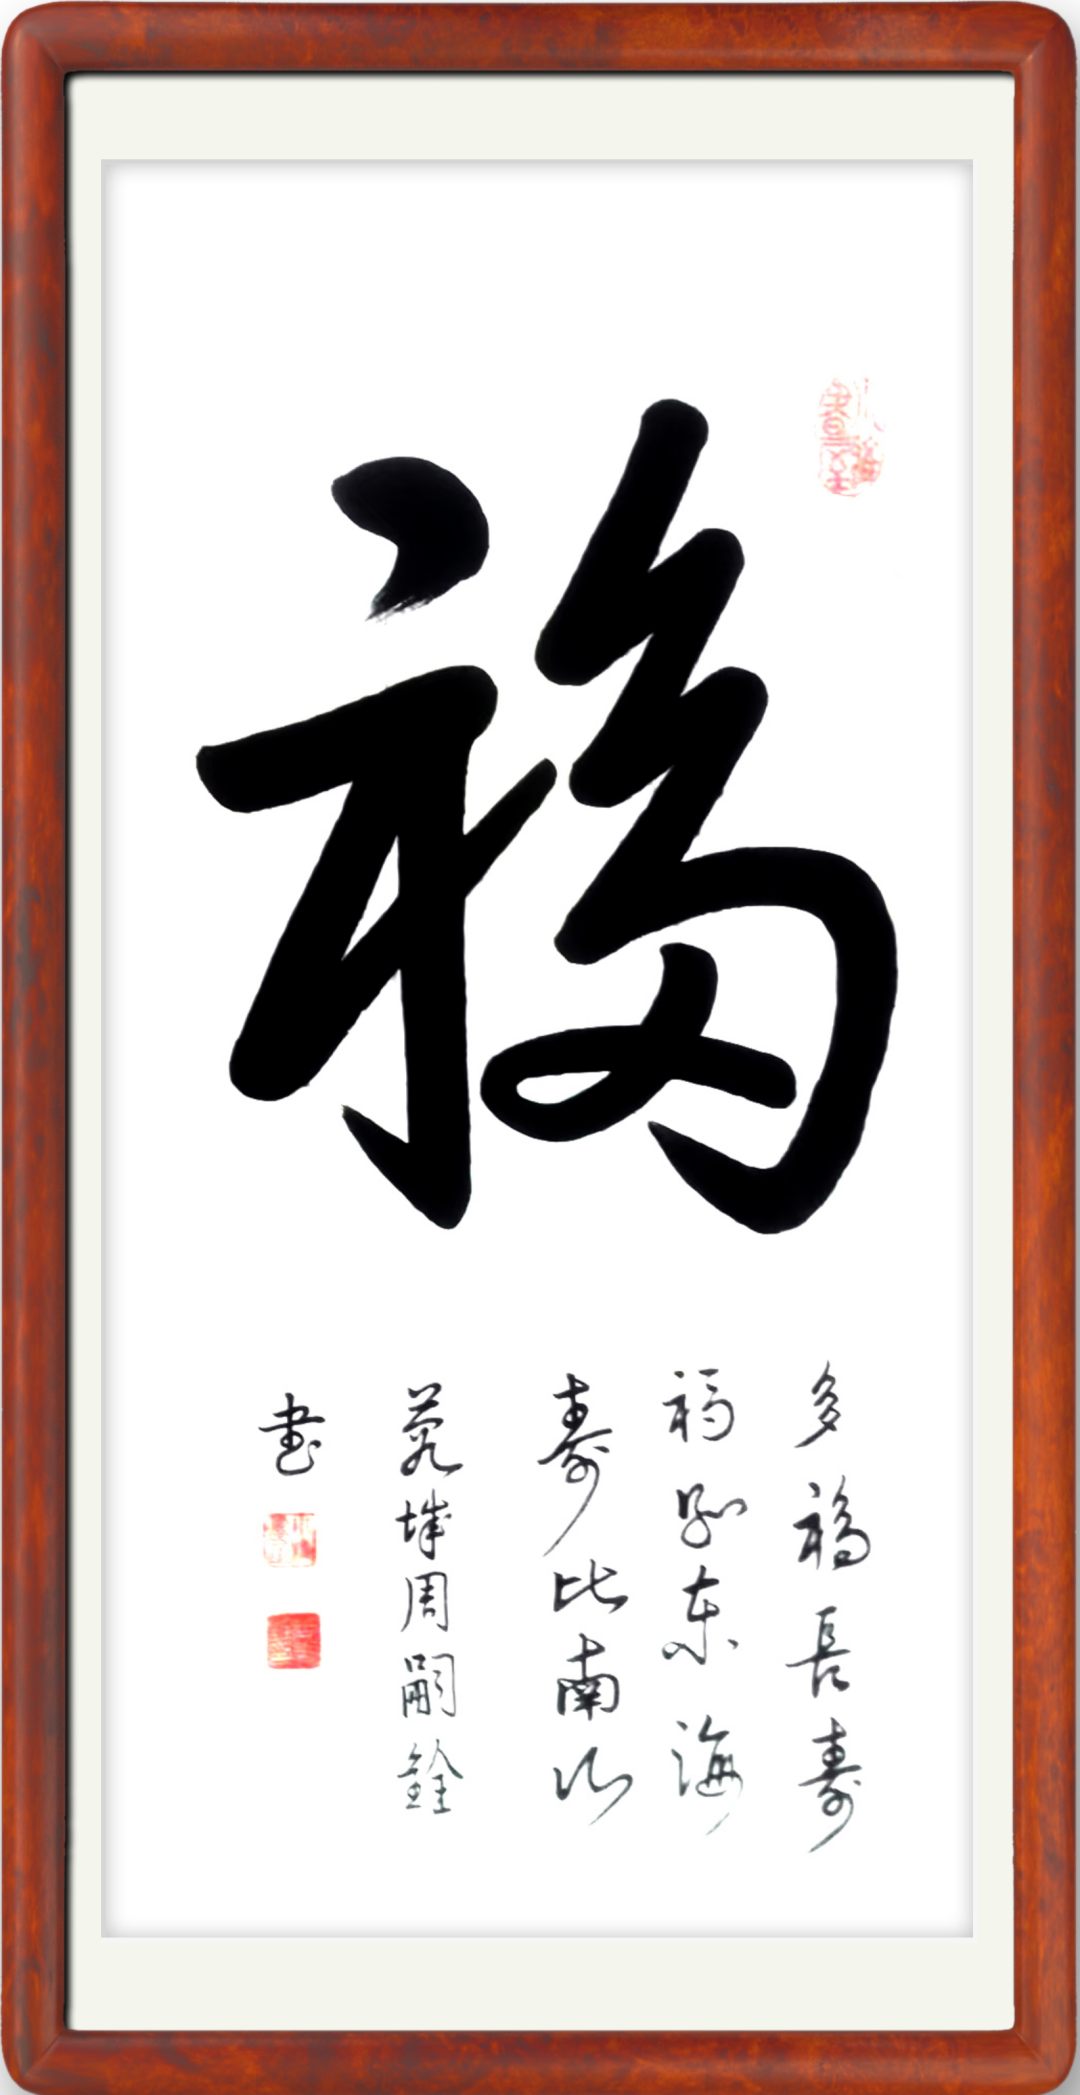 福
多福長壽
福如东海
寿比南山
苑城周嗣銓
书